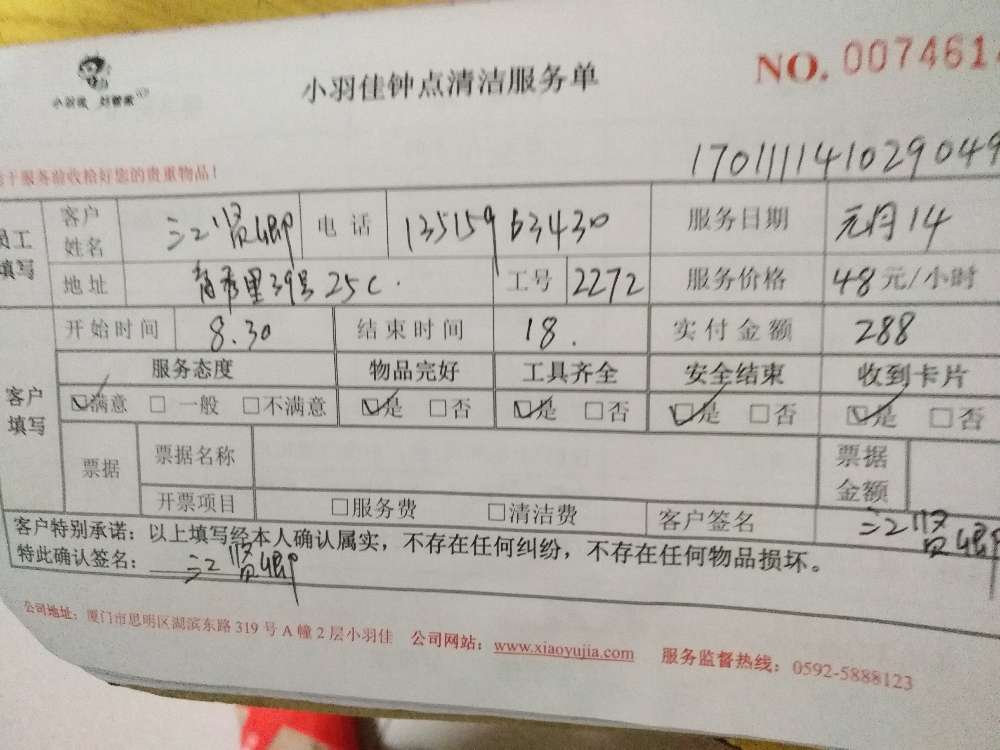 小羽佳钟点清洁服务单
NO. 0074614
小羽佳 好管家
170111141029049
于服务前收拾好您的贵重物品!
员工填写 客户姓名 电话 13515963430 服务日期 元月14
地址 39号25C. 工号 2272 服务价格 48元/小时
客户填写 开始时间 8.30 结束时间 18. 实付金额 288
服务态度 物品完好 工具齐全 安全结束 收到卡片
满意 一般 不满意 是 否 是 否 是 否 是 否
票据 票据名称 票据金额
开票项目 服务费 清洁费 客户签名
客户特别承诺:以上填写经本人确认属实,不存在任何纠纷,不存在任何物品损坏。
特此确认签名:
公司地址:厦门市思明区湖滨东路319号A幢2层小羽佳 公司网站:www.xiaoyujia.com 服务监督热线:0592-5888123